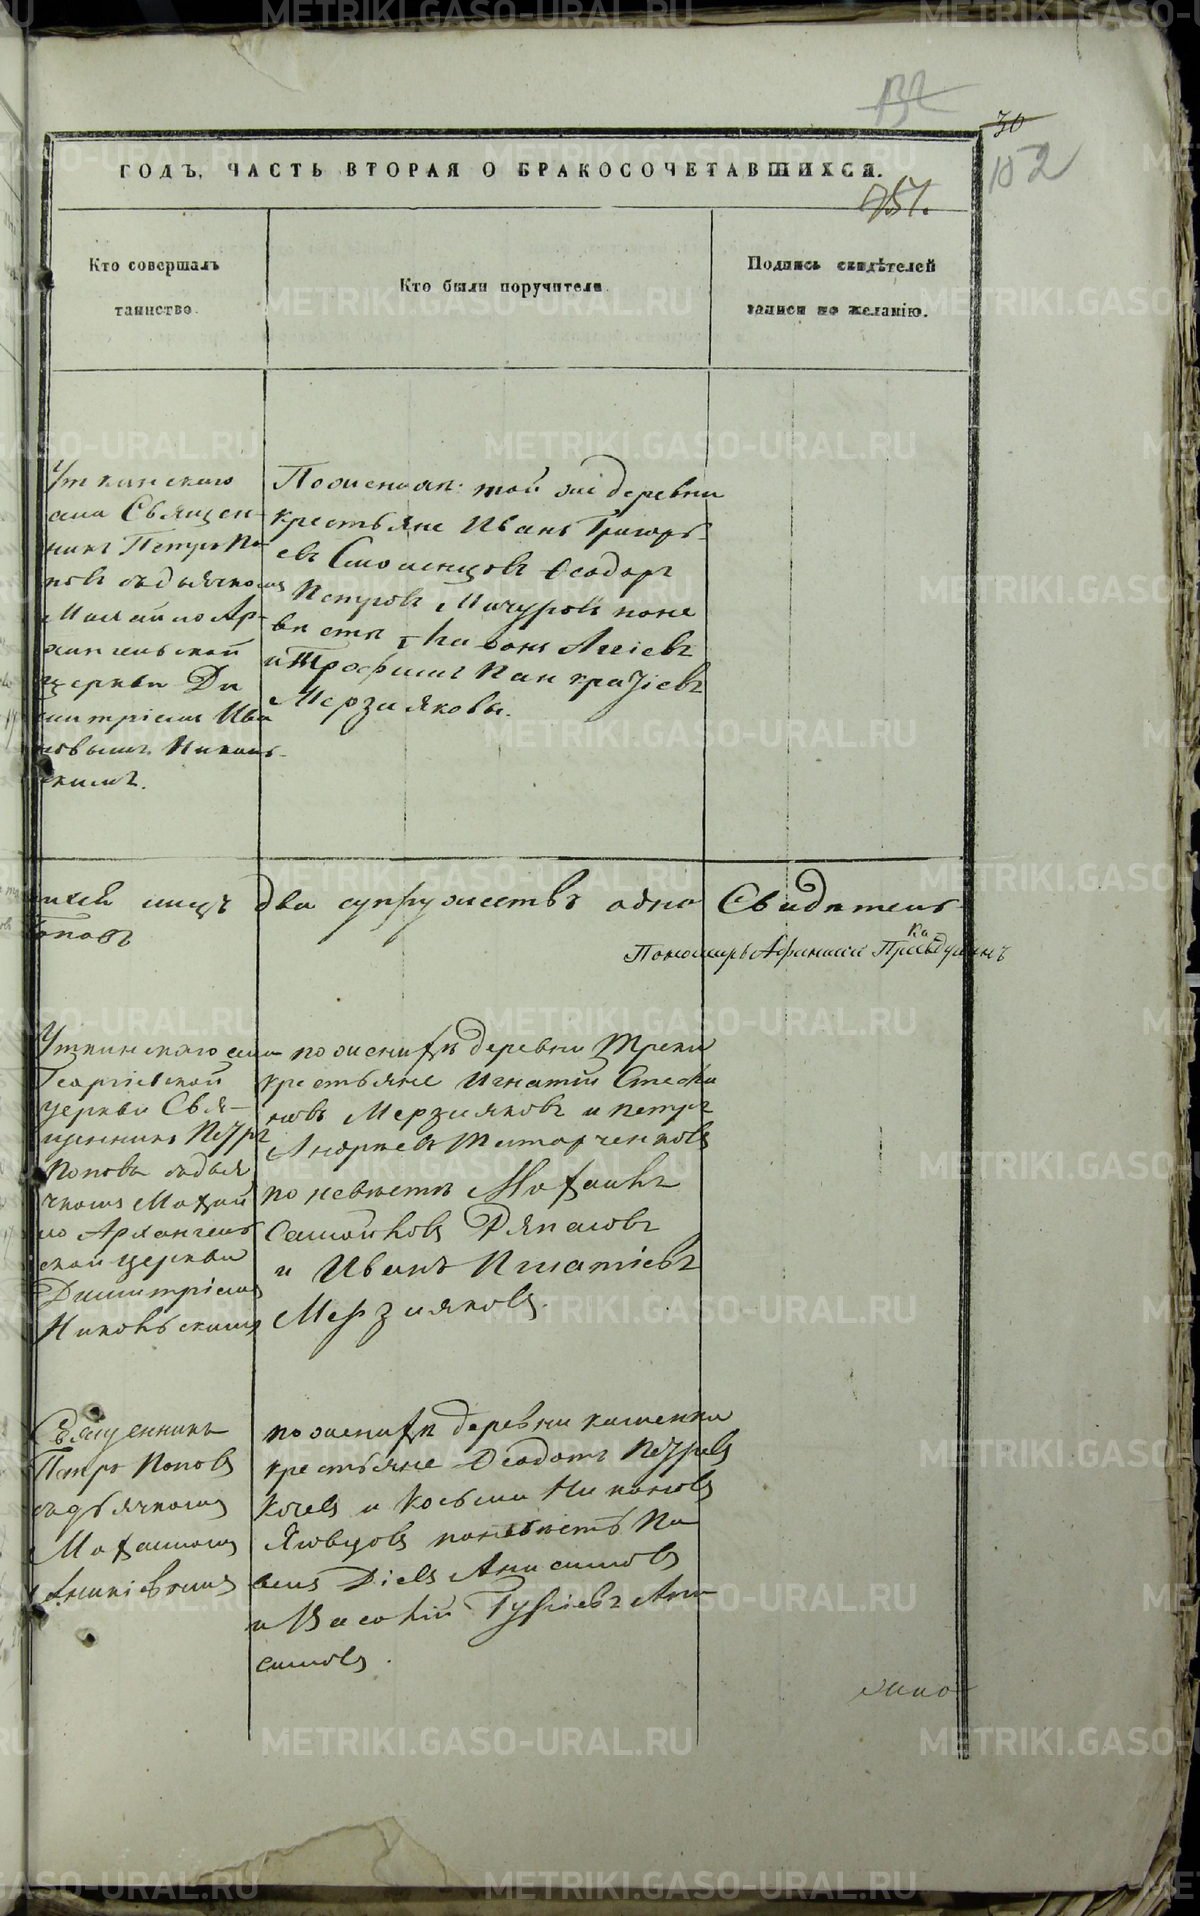 132
30
152
ГОДЪ, ЧАСТЬ ВТОРАЯ О БРАКОСОЧЕТАВШИХСЯ.
751.
Кто совершалъ
таинство.
Кто были поручители.
Подпись свидѣтелей
записи по желанію.
Уткинского
села Священ-
никъ Петръ По-
повъ съ дьячкомъ
Михайло Ар-
хангельской
церкви Ди
митріемъ Ива
новымъ Николь-
скимъ.
По женихѣ: той же деревни
крестьяне Иванъ Григорь-
евъ Смоленцовъ Ѳеодоръ
Петровъ Мичуровъ по не
вѣсты
и Трофимъ Панкратіевъ
Мерзляковы.
лицъ два супружествъ одно Свидѣтель
Пономарь Афанасій
Уткинского села
Георгіевской
церкви Свя-
щенникъ Петръ
Поповъ съ дья
чкомъ Михай
ло Архангель
ской церкви
Димитріемъ
Никольскимъ
по женихѣ деревни Треки
крестьяне Игнатій Стефа
новъ Мерзляковъ и Петръ
Андреевъ Титарченковъ
по невѣстѣ Михаилъ
Самойловъ Ряпасовъ
и Иванъ Игнатіевъ
Мерзляковъ.
Священникъ
Петръ Поповъ
съ дьячкомъ
Михаиломъ
по женихѣ деревни каменки
крестьяне Ѳеодотъ Петровъ
и Косьма Никоновъ
по невѣстѣ Па
велъ Анисимовъ
и Василій Гурьевъ Ани-
симовъ.
METRIKI.GASO-URAL.RU